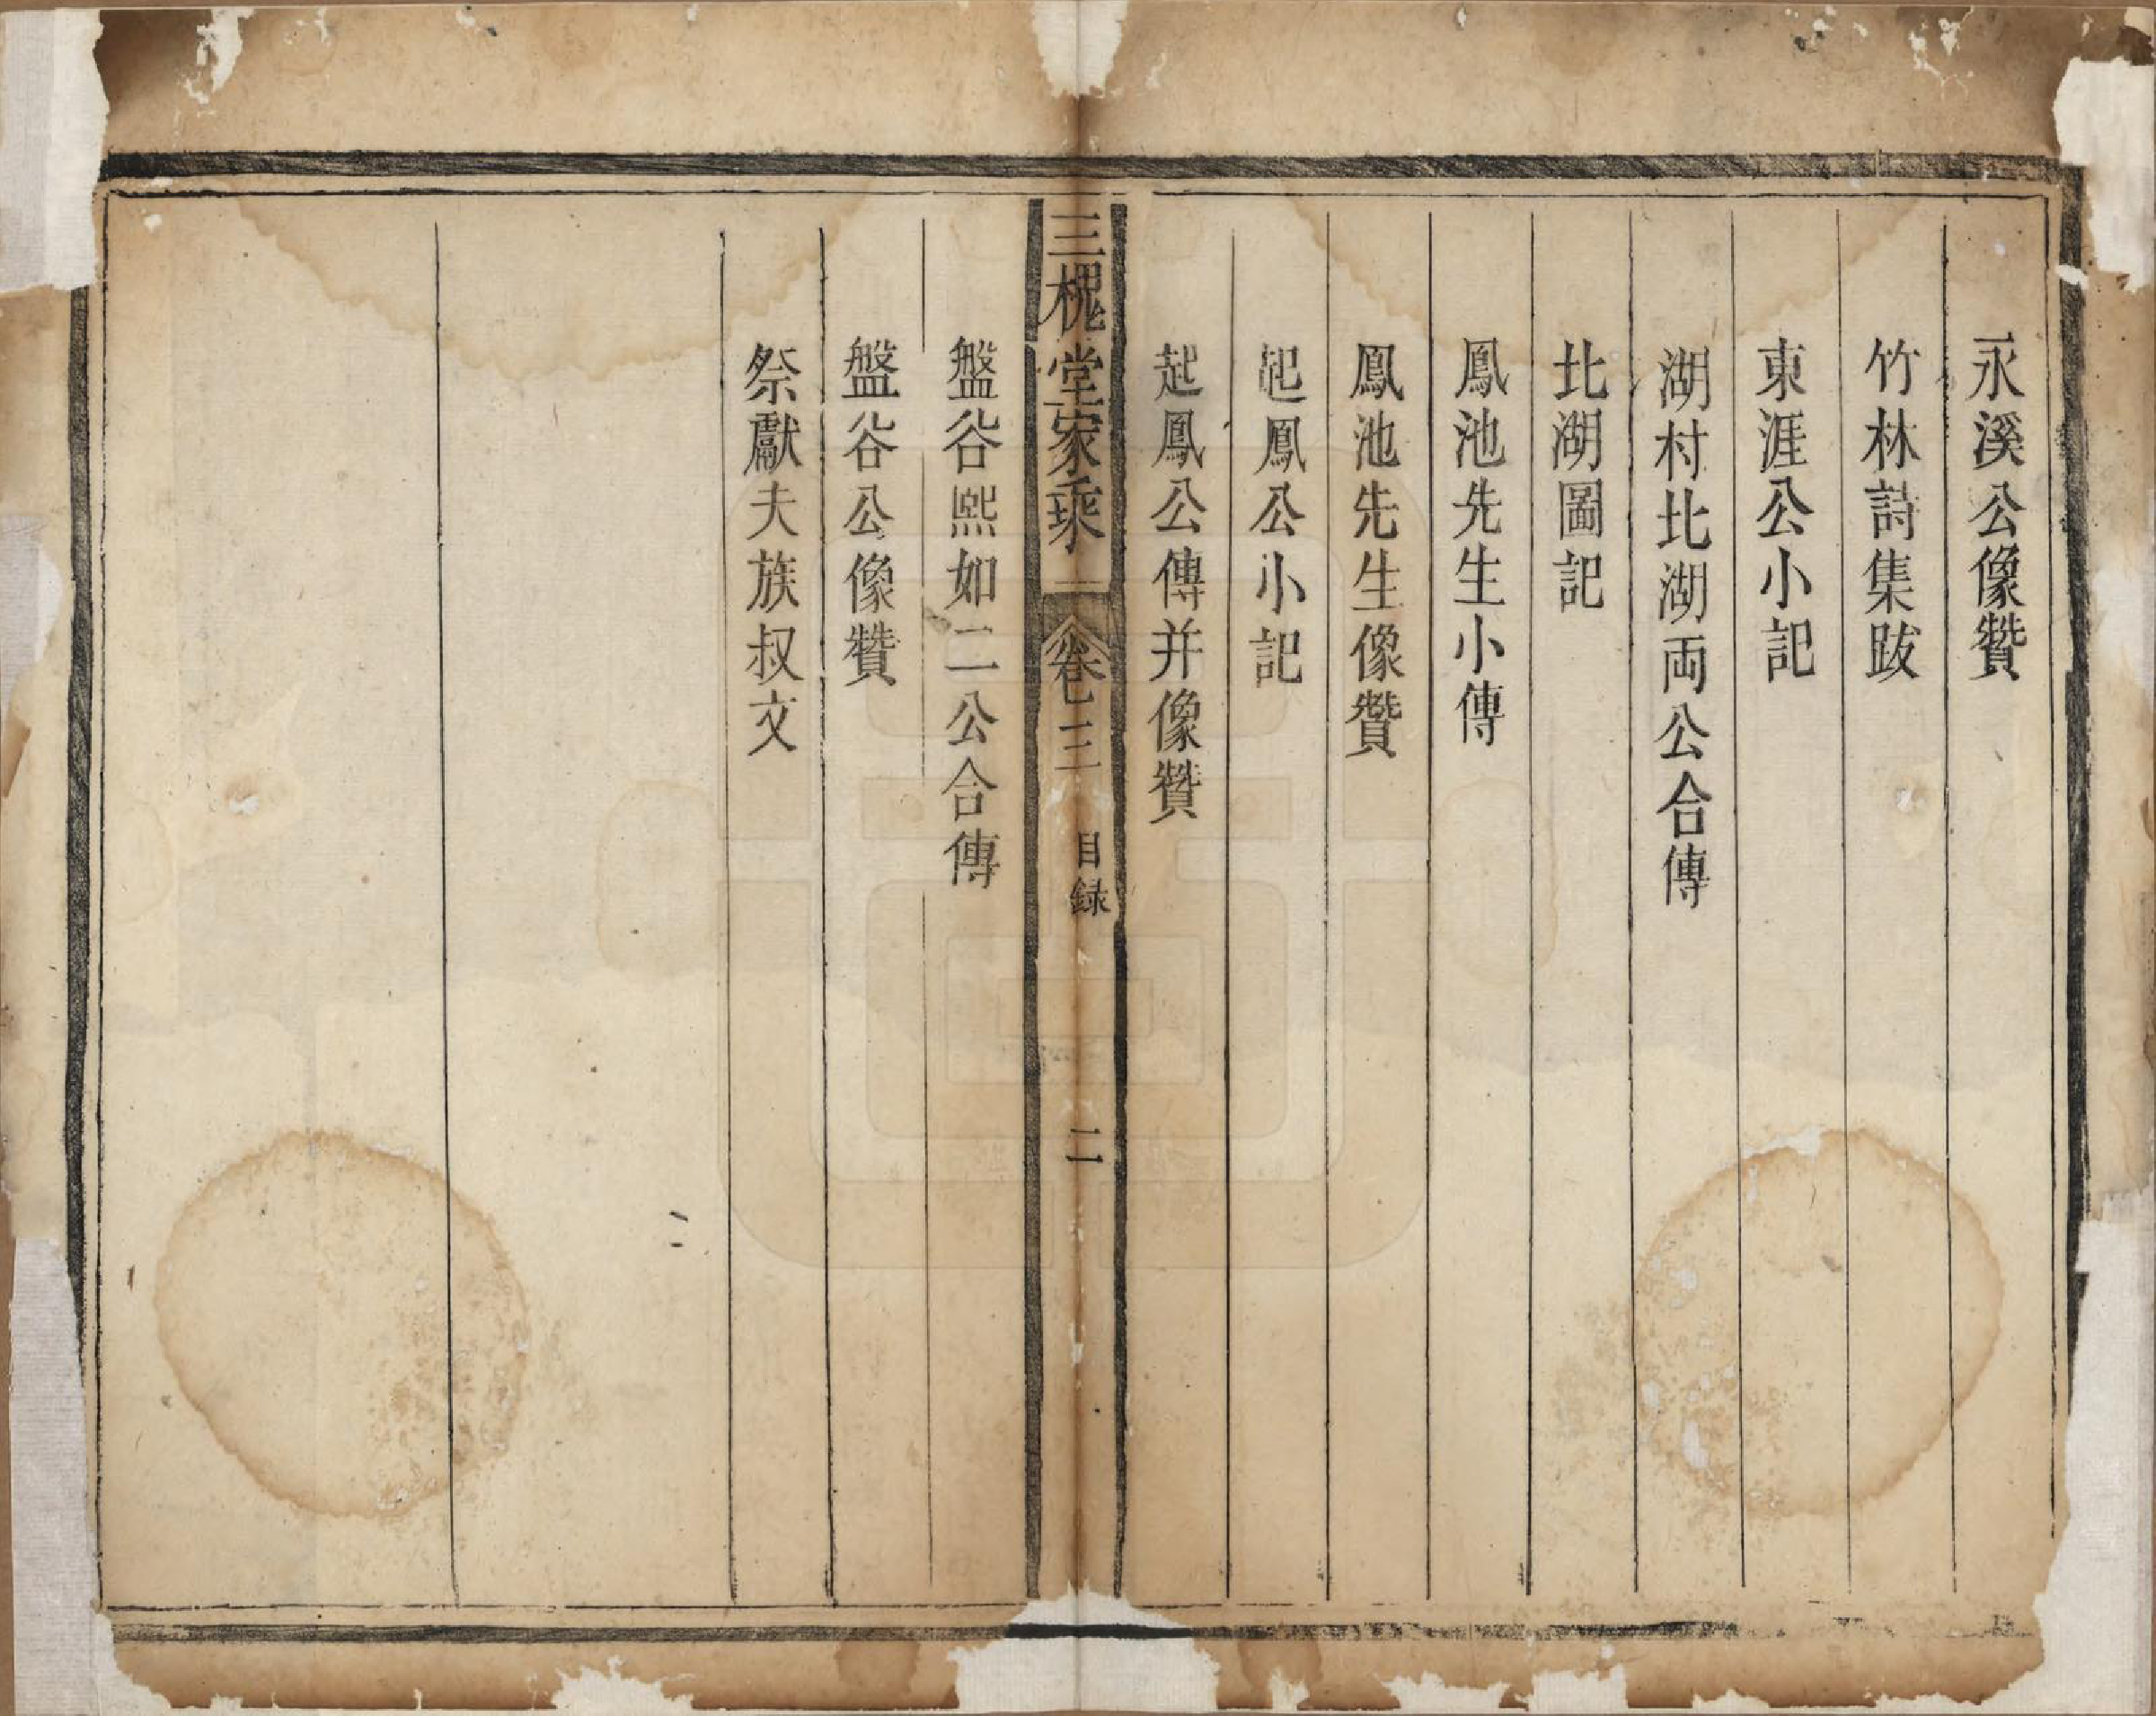 永溪公像贊
竹林詩集跋
東涯公小記
湖村北湖両公合傳
北湖圖記
鳳池先生小傳
鳳池先生像贊
起鳳公小記
起鳳公傳并像贊
三槐堂家乘 卷三 目録 二
盤谷熙如二公合傳
盤谷公像贊
祭獻夫族叔文